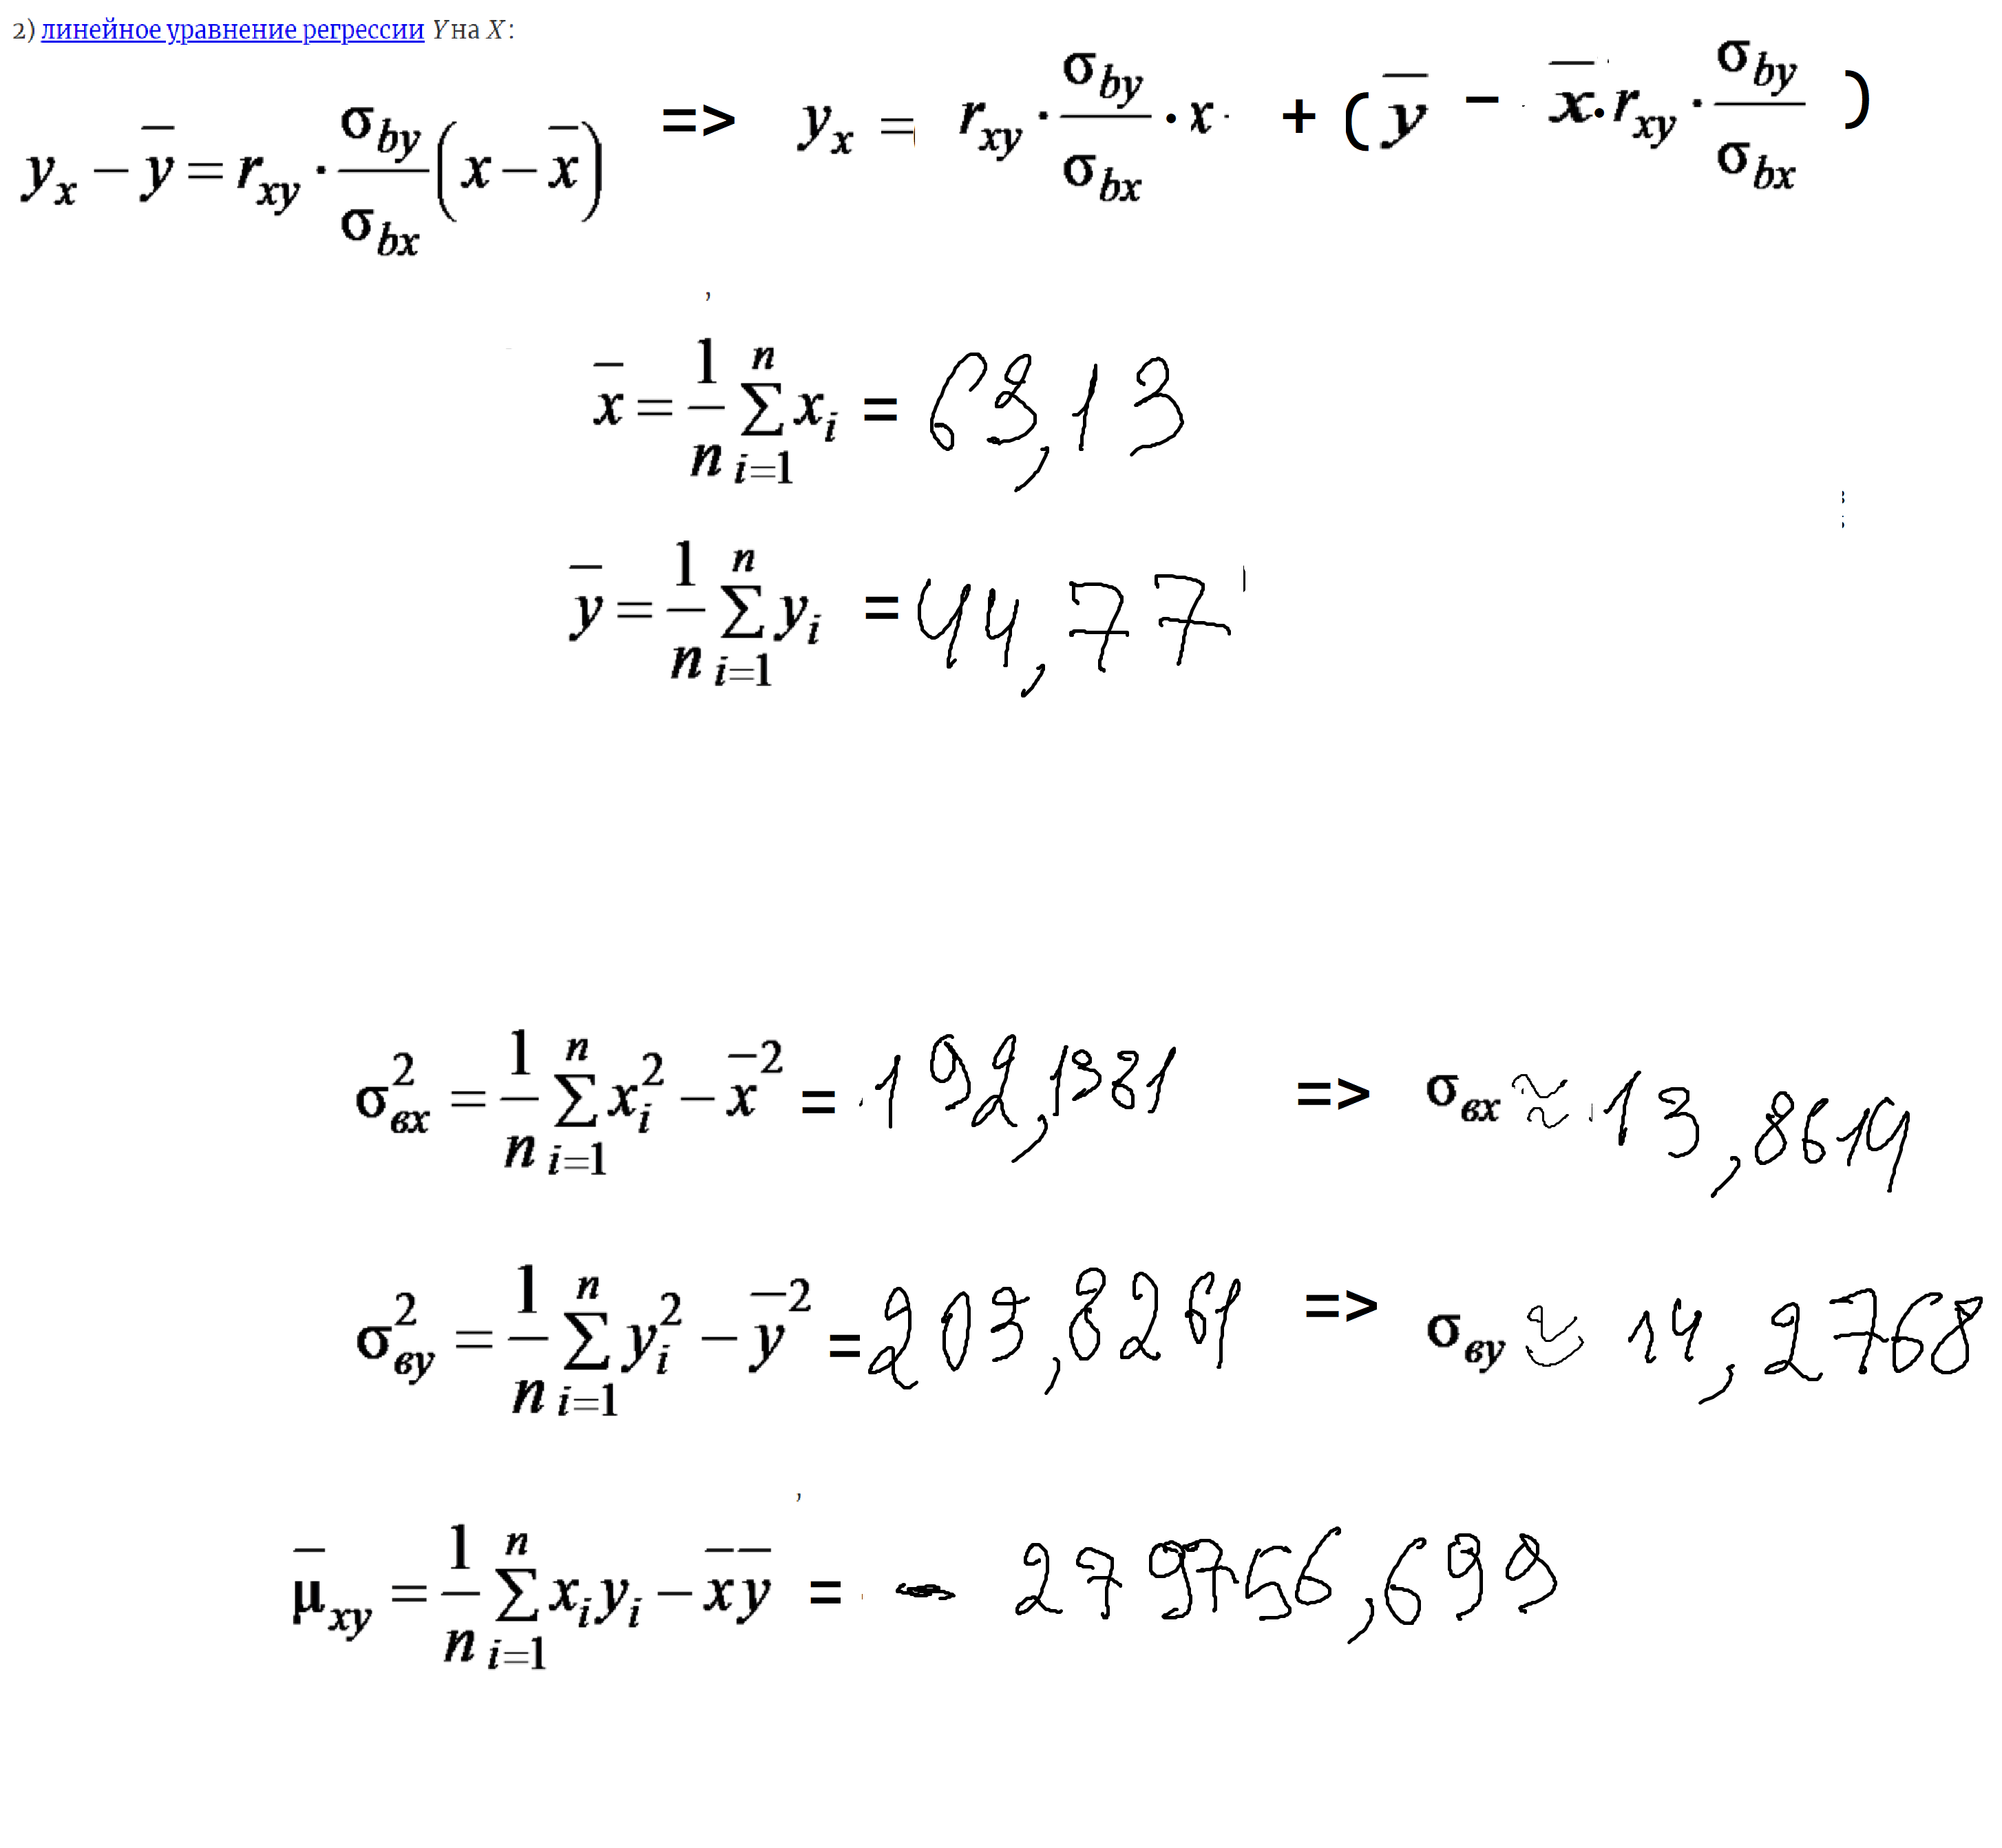 2) линейное уравнение регрессии Y на X :
y_x − y̅ = r_xy · σ_by / σ_bx (x − x̅) => y_x = r_xy · σ_by / σ_bx · x + ( y̅ − x̅ · r_xy · σ_by / σ_bx )
,
x̅ = 1/n ∑_{i=1}^{n} x_i = 69,13
y̅ = 1/n ∑_{i=1}^{n} y_i = 44,77
σ²_вх = 1/n ∑_{i=1}^{n} x_i² − x̅² = 192,1331 => σ_вх ≈ 13,8614
σ²_ву = 1/n ∑_{i=1}^{n} y_i² − y̅² = 203,8261 => σ_ву ≈ 14,2768
,
μ̅_xy = 1/n ∑_{i=1}^{n} x_i y_i − x̅ y̅ = - 279756,699